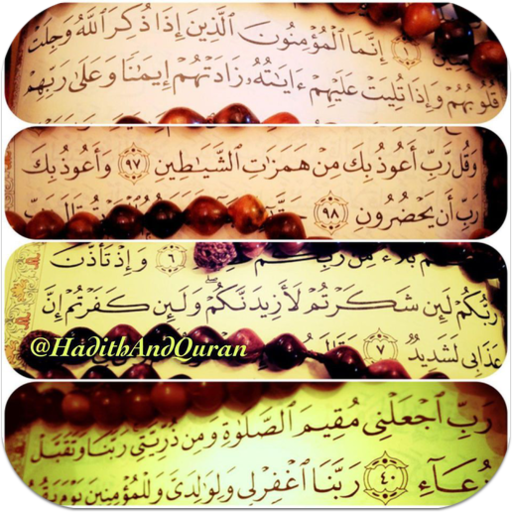 إِنَّمَا ٱلْمُؤْمِنُونَ ٱلَّذِينَ إِذَا ذُكِرَ ٱللَّهُ وَجِلَتْ
قُلُوبُهُمْ وَإِذَا تُلِيَتْ عَلَيْهِمْ ءَايَٰتُهُۥ زَادَتْهُمْ إِيمَٰنًا وَعَلَىٰ رَبِّهِمْ
وَقُل رَّبِّ أَعُوذُ بِكَ مِنْ هَمَزَٰتِ ٱلشَّيَٰطِينِ ٩٧ وَأَعُوذُ بِكَ
رَبِّ أَن يَحْضُرُونِ ٩٨
بَلَآءٌ مِّن رَّبِّكُمْ ٦ وَإِذْ تَأَذَّنَ
رَبُّكُمْ لَئِن شَكَرْتُمْ لَأَزِيدَنَّكُمْ ۖ وَلَئِن كَفَرْتُمْ إِنَّ
عَذَابِى لَشَدِيدٌ ٧
@HadithAndQuran
رَبِّ ٱجْعَلْنِى مُقِيمَ ٱلصَّلَوٰةِ وَمِن ذُرِّيَّتِى رَبَّنَا وَتَقَبَّلْ
دُعَآءِ ٤٠ رَبَّنَا ٱغْفِرْ لِى وَلِوَٰلِدَىَّ وَلِلْمُؤْمِنِينَ يَوْمَ يَقُومُ